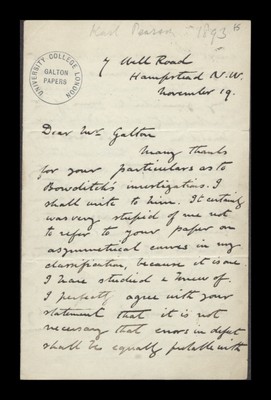 Karl Pearson 1893
15
UNIVERSITY COLLEGE LONDON
GALTON
PAPERS
7 Well Road
Hampstead N.W.
November 19.
Dear Mr Galton
Many thanks
for your particulars as to
Bowditch's investigations. I
shall write to him. It certainly
was very stupid of me not
to refer to your paper on
asymmetrical curves in my
classification, because it is one
I have studied & knew of.
I perfectly agree with your
statement that it is not
necessary that errors in defect
shall be equally probable with